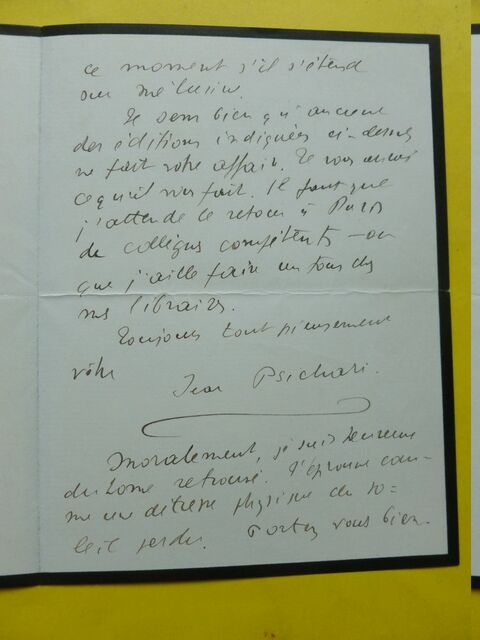 ce moment s'il s'étend
ou
Je sens bien qu'aucune
des éditions indiquées ci-dessus
ne fait votre affaire. Je vous
ce qu'il vous faut. Il faut que
j'attende le retour à Paris
de collègues compétents – ou
que j'aille faire un tour chez
nos libraires.
Toujours tout pieusement
vôtre
Jean Psichari.
Moralement, je suis heureux
du home retrouvé. J'éprouve com-
me une détresse physique du so=
leil perdu. Portez vous bien.